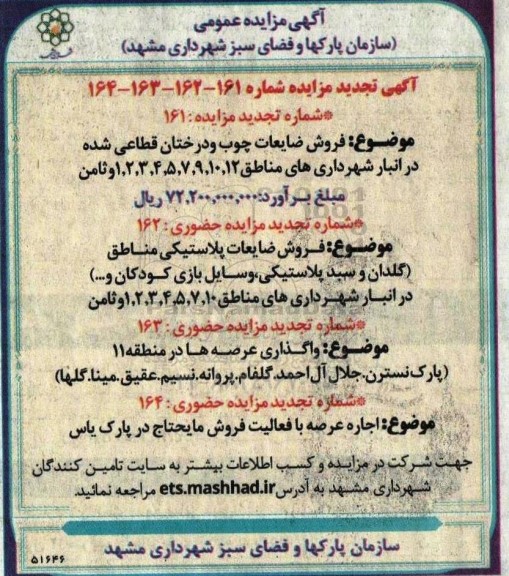 آگهی مزایده عمومی
(سازمان پارکها و فضای سبز شهرداری مشهد)
آگهی تجدید مزایده شماره ۱۶۱-۱۶۲-۱۶۳-۱۶۴
*شماره تجدید مزایده: ۱۶۱
موضوع: فروش ضایعات چوب ودرختان قطاعی شده
در انبار شهرداری های مناطق۱,۲,۳,۴,۵,۷,۹,۱۰,۱۲وثامن
مبلغ برآورد:۷۲,۲۰۰,۰۰۰,۰۰۰ ریال
*شماره تجدید مزایده حضوری: ۱۶۲
موضوع: فروش ضایعات پلاستیکی مناطق
(گلدان و سبد پلاستیکی،وسایل بازی کودکان و...)
در انبار شهرداری های مناطق۱,۲,۳,۴,۵,۷,۱۰وثامن
*شماره تجدید مزایده حضوری: ۱۶۳
موضوع: واگذاری عرصه ها در منطقه۱۱
(پارک نسترن.جلال آل احمد.گلفام.پروانه.نسیم.عقیق.مینا.گلها)
*شماره تجدید مزایده حضوری: ۱۶۴
موضوع: اجاره عرصه با فعالیت فروش مایحتاج در پارک یاس
جهت شرکت در مزایده و کسب اطلاعات بیشتر به سایت تامین کنندگان
شهرداری مشهد به آدرس ets.mashhad.ir مراجعه نمائید.
سازمان پارکها و فضای سبز شهرداری مشهد
۵۱۶۴۶